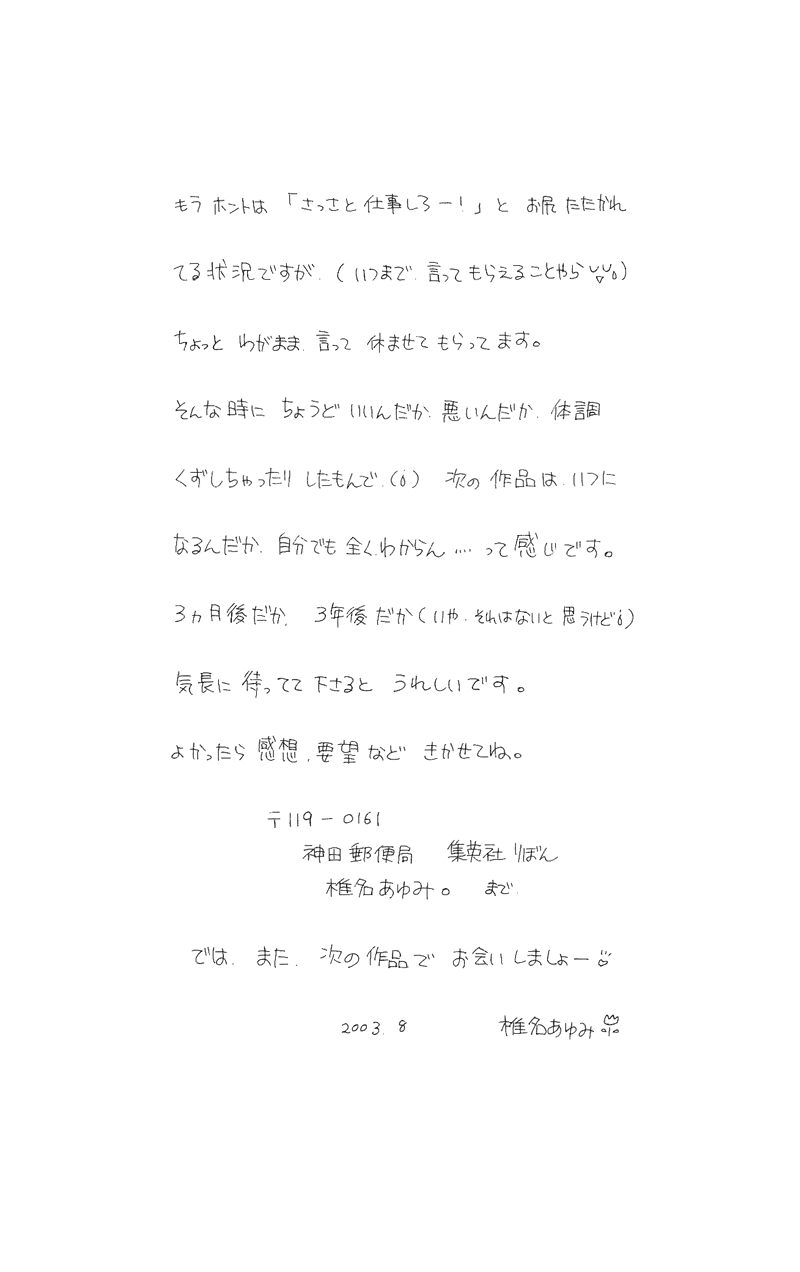 もう ホントは 「さっさと 仕事しろー!」と お尻 たたかれ
てる 状況ですが、(いつまで、言って もらえることやら。)
ちょっと わがまま、言って 休ませて もらってます。
そんな時に ちょうど いいんだか、悪いんだか、体調
くずしちゃったり したもんで、(ó) 次の 作品は、いつに
なるんだか、自分でも 全く、わからん …. って 感じです。
3ヵ月後だか、3年後だか(いや、それはないと 思うけどó)
気長に 待ってて 下さると うれしいです。
よかったら 感想、要望など きかせてね。
〒119-0161
神田郵便局 集英社 りぼん
椎名あゆみ。 まで、
では、また、次の作品で お会いしましょー
2003. 8 椎名あゆみ